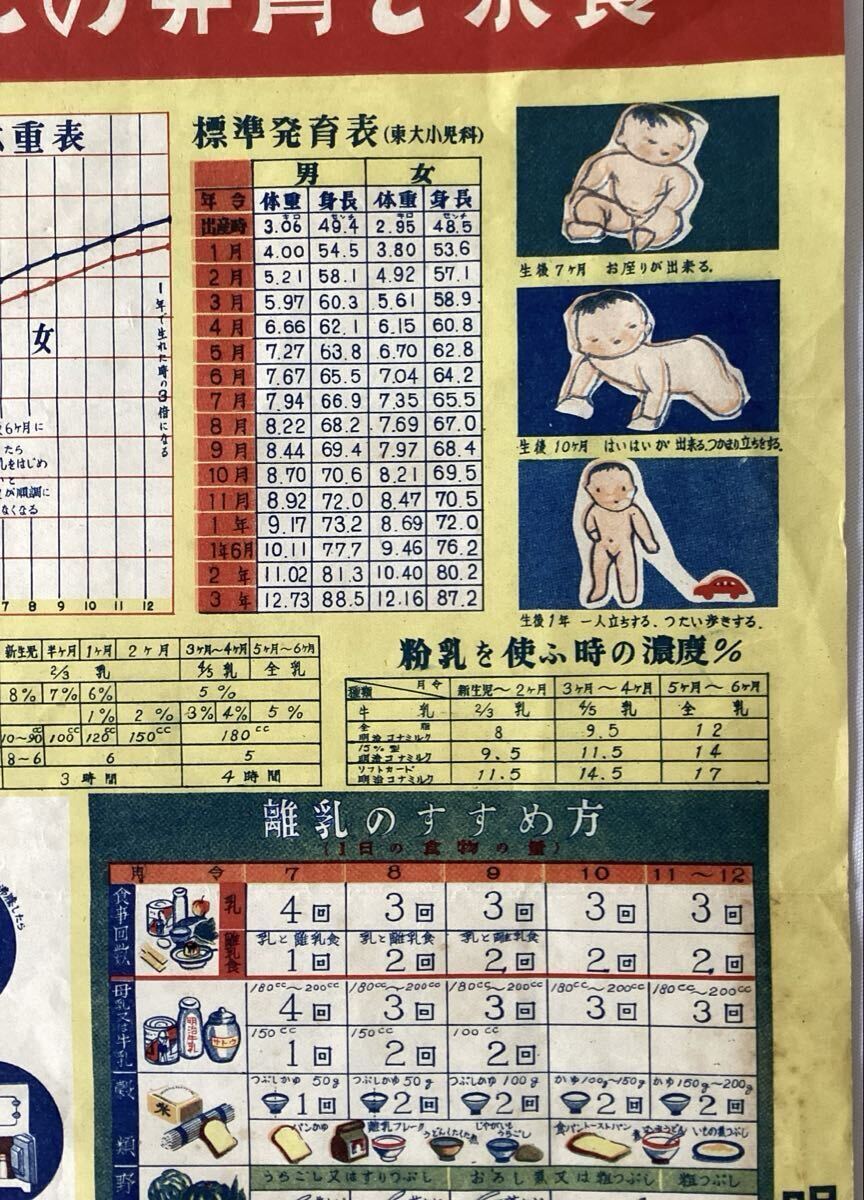 の弉育と栄食
重表
女
1年で生れた時の3倍になる
6ヶ月に
たら
乳をはじめ
と
が順調に
なくなる
7 8 9 10 11 12
標準発育表(東大小児科)
男 女
年令 体重 身長 体重 身長
キロ センチ キロ センチ
出産時 3.06 49.4 2.95 48.5
1月 4.00 54.5 3.80 53.6
2月 5.21 58.1 4.92 57.1
3月 5.97 60.3 5.61 58.9
4月 6.66 62.1 6.15 60.8
5月 7.27 63.8 6.70 62.8
6月 7.67 65.5 7.04 64.2
7月 7.94 66.9 7.35 65.5
8月 8.22 68.2 7.69 67.0
9月 8.44 69.4 7.97 68.4
10月 8.70 70.6 8.21 69.5
11月 8.92 72.0 8.47 70.5
1年 9.17 73.2 8.69 72.0
1年6月 10.11 77.7 9.46 76.2
2年 11.02 81.3 10.40 80.2
3年 12.73 88.5 12.16 87.2
生後7ヶ月 お座りが出来る.
生後10ヶ月 はいはいが出来る.つかまり立ちをする.
生後1年 一人立ちする. つたい歩きする.
新生児 半ヶ月 1ヶ月 2ヶ月 3ヶ月〜4ヶ月 5ヶ月〜6ヶ月
2/3 乳 4/5 乳 全乳
8% 7% 6% 5%
1% 2% 3% 4% 5%
10〜90cc 100cc 120cc 150cc 180cc
8〜6 6 5
3時間 4時間
粉乳を使ふ時の濃度%
種類 月令 新生児〜2ヶ月 3ヶ月〜4ヶ月 5ヶ月〜6ヶ月
牛乳 2/3 乳 4/5 乳 全乳
全脂明治コナミルク 8 9.5 12
15%型明治コナミルク 9.5 11.5 14
ソフトカード明治コナミルク 11.5 14.5 17
離乳のすすめ方
(1日の食物の量)
月令 7 8 9 10 11〜12
食事回数
乳 4回 3回 3回 3回 3回
乳と離乳食 乳と離乳食 乳と離乳食
離乳食 1回 2回 2回 2回 2回
母乳又は牛乳
明治牛乳
サトウ
180cc〜200cc 180cc〜200cc 180cc〜200cc 180cc〜200cc 180cc〜200cc
4回 3回 3回 3回 3回
150cc 150cc 100cc
1回 2回 2回
穀類
米
つぶしかゆ 50g つぶしかゆ 50g つぶしかゆ 100g かゆ100g〜150g かゆ150g〜200g
1回 2回 2回 2回 2回
パンかゆ 離乳フレーク うどんくたくた煮 じゃがいもうらごし 食パントーストパン 煮込うどん いもの煮つぶし
野
うらごし又はすりつぶし おろし煮又は粗つぶし 粗つぶし